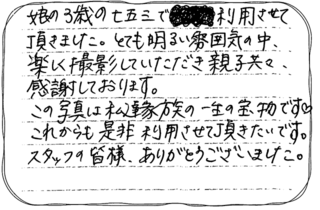 娘の3歳の七五三で利用させて
頂きました。とても明るい雰囲気の中、
楽しく撮影していただき親子共々、
感謝しております。
この写真は私達家族の一生の宝物です♡
これからも是非利用させて頂きたいです。
スタッフの皆様、ありがとうございました。